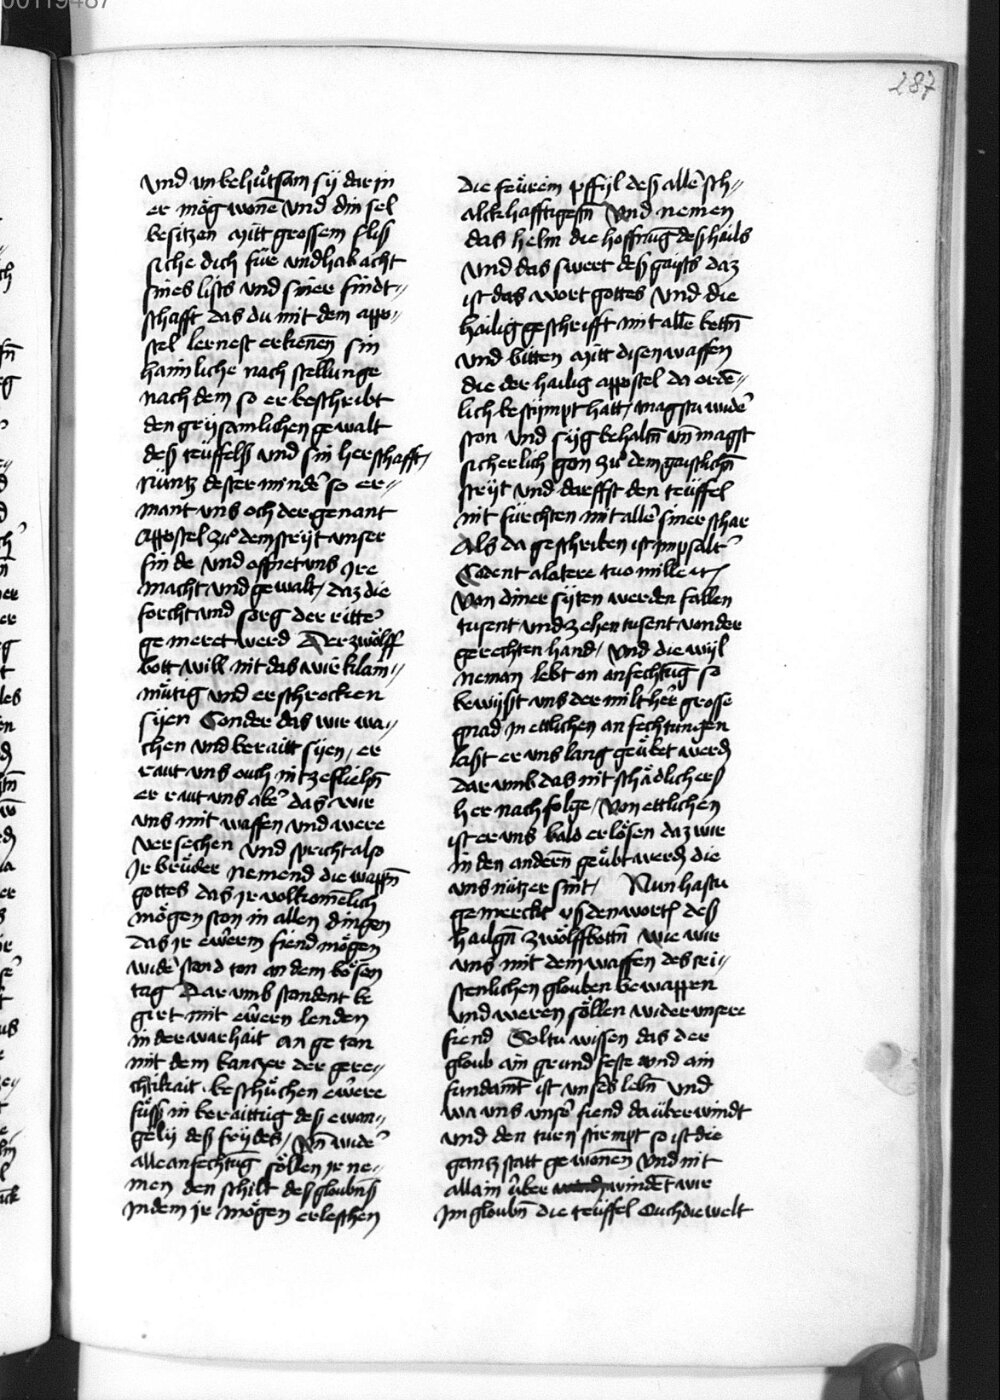 00119487
287
vnd vnbehuͦtsam sÿ dar in
er mög wonē vnd din sel
besitzen Mitt grossem fliß
siche dich für vnd hab acht
sines lists vnd siner findt-
schafft das du mit dem appo-
stel lernest erkenen sin
haimliche nach stellunge
nach dem so er beschribt
den grÿsamlichen gewalt
deß teüffelß vnd sin herschafft
nüntz dester mindē so er-
mant vns och der genant
appostel zuͦ dem strÿt vnser
finde vnd offnet vns Jre
macht vnd gewalt / daz die
forcht vnd sorg der rittē
gemeret werd Der zwölff
bott will nit das wir klain-
mütig vnd erschrocken
sÿen Sonder das wir wa-
chen vnd beraitt sÿen / er
raut vns ouch nit ze fliehn̄
er raut vns abē das wir
vns mit waffen vnd were
versechen vnd spricht also
Jr brüder nemend die waffn̄
gottes das jr volkomēlich
mögen ston in allen dingen
das jr ewerm fiend mögen
widē stand ton an dem bösen
tag Dar vmb standent be
girt mit ewern lenden
in der warhait an geton
mit dem banczer der gere-
chtikait beschüchen ewere
füß in beraittūg deß ewan-
gelij deß frÿdes / Vn̄ widē
alle anfechtūg söllen jr ne-
men den schilt deß gloubnß
Jndem jr mögen erleschen
die feürein pffÿl deß allē sch-
alckhafftigestn̄ Vnd nemen
das helm die hoffnūg deß hails
vnd das swert deß gaÿsts daz
ist das wort gottes vnd die
hailig geschrifft mit allē bettn̄
vnd bitten Mitt disen waffen
die der hailig appostel da ordē-
lich bestÿmpt hatt / magstu widē
ston vnd sÿg behaltn̄ vn̄ magst
sicherlich gon zuͦ dem gaistlichn̄
strÿt vnd darffst den teüffel
nit fürchten mit allē siner schar
Als da geschriben ist jm psaltē
Cadent a latere tuo mille ⁊c
Von diner sÿten werden fallen
tusent vnd zehentusent von der
gerechten hand / Vnd die wÿl
neman lebt on anfechtūg so
bewÿßt vns der milt her grosse
gnad Jn ettlichen anfechtungen
laßt er vns lang geübet werdn̄
dar vmb das nit schädlichers
her nach folge / Von ettlichen
ist er vns bald erlösen daz wir
in den anderen geübt werdn̄ die
vns nützer sint / Nun hastu
gemerckt vß den wortn̄ deß
hailgn̄ zwölffbottn̄ wie wir
vns mit dem waffen des cri-
stenlichen glouben bewappen
vnd weren söllen wider vnsere
fiend Soltu wissen das der
gloub ain grundfeste vnd ain
fundamēt ist vnsers lebn̄ vnd
wa vns vnsē fiend da überwindt
vnd den turn stirmpt so ist die
gantz statt gewonen Vnd nit
allain über windēt wir
Jm gloubn̄ die teüffel Ouch die welt